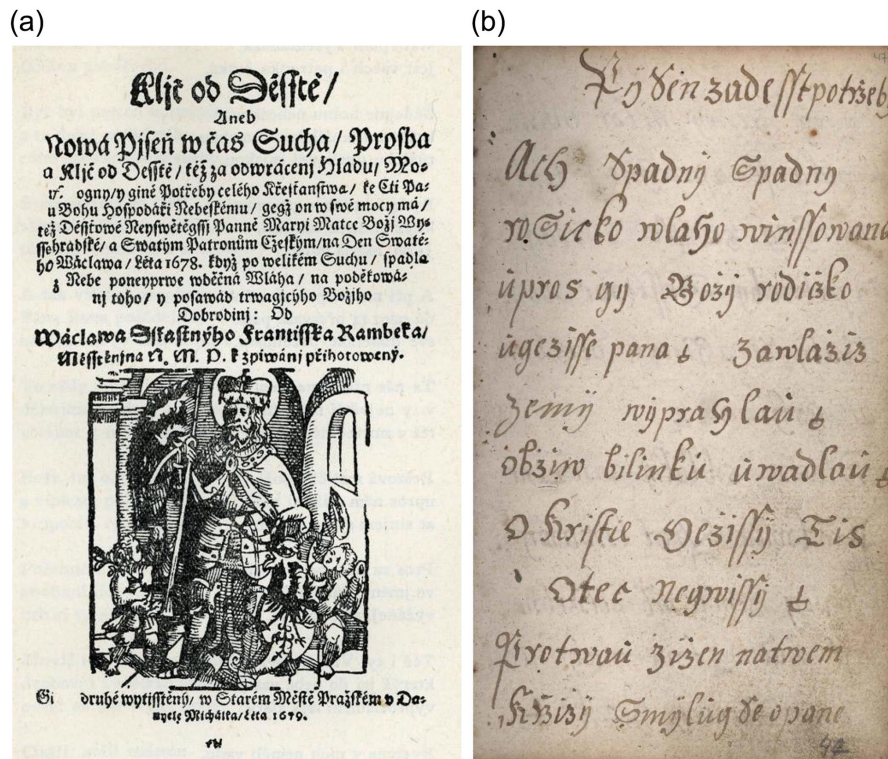 (a)
Kljč od Děsstě/
Aneb
Nowá Pjseň w čas Sucha/ Prosba
a Kljč od Desstě/ též za odwrácenj Hladu/ Mo-
ogny/ y giné Potřeby celého Křesťanstwa/ ke Cti Pa-
u Bohu Hospodáři Nebeskému/ gegž on w swé mocy má/
též Děsstowé Neyswětěgssj Panně Maryi Matce Božj Wy-
ssehradské/ a Swatým Patronům Cžeským/ na Den Swaté-
ho Wáclawa/ Léta 1678. když po welikém Suchu/ spadla
z Nebe poneyprwe wděčná Wláha/ na poděkowá-
nj toho/ y posawád trwagjcýho Božjho
Dobrodinj: Od
Wáclawa Sstastnýho Frantisska Rambeka/
Měsstěnjna N. M. P. k zpiwánj přihotowený.
Gi druhé wytisstěný/ w Starém Městě Pražském v Da-
nyele Michálka/ Léta 1679.
(b)
Pysen za desst potřeb
Ach Spadny Spadny
roSicko wlaho winssowana
upros gy Božy rodičko
ugezisse pana zawlaziz
zemy wyprahlau
obziw bilinku uwadlau
O Kristie Gezissy Tis
Otec Negwissy
Protwau zizen natwem
Křizy Smylug Se o pane
42